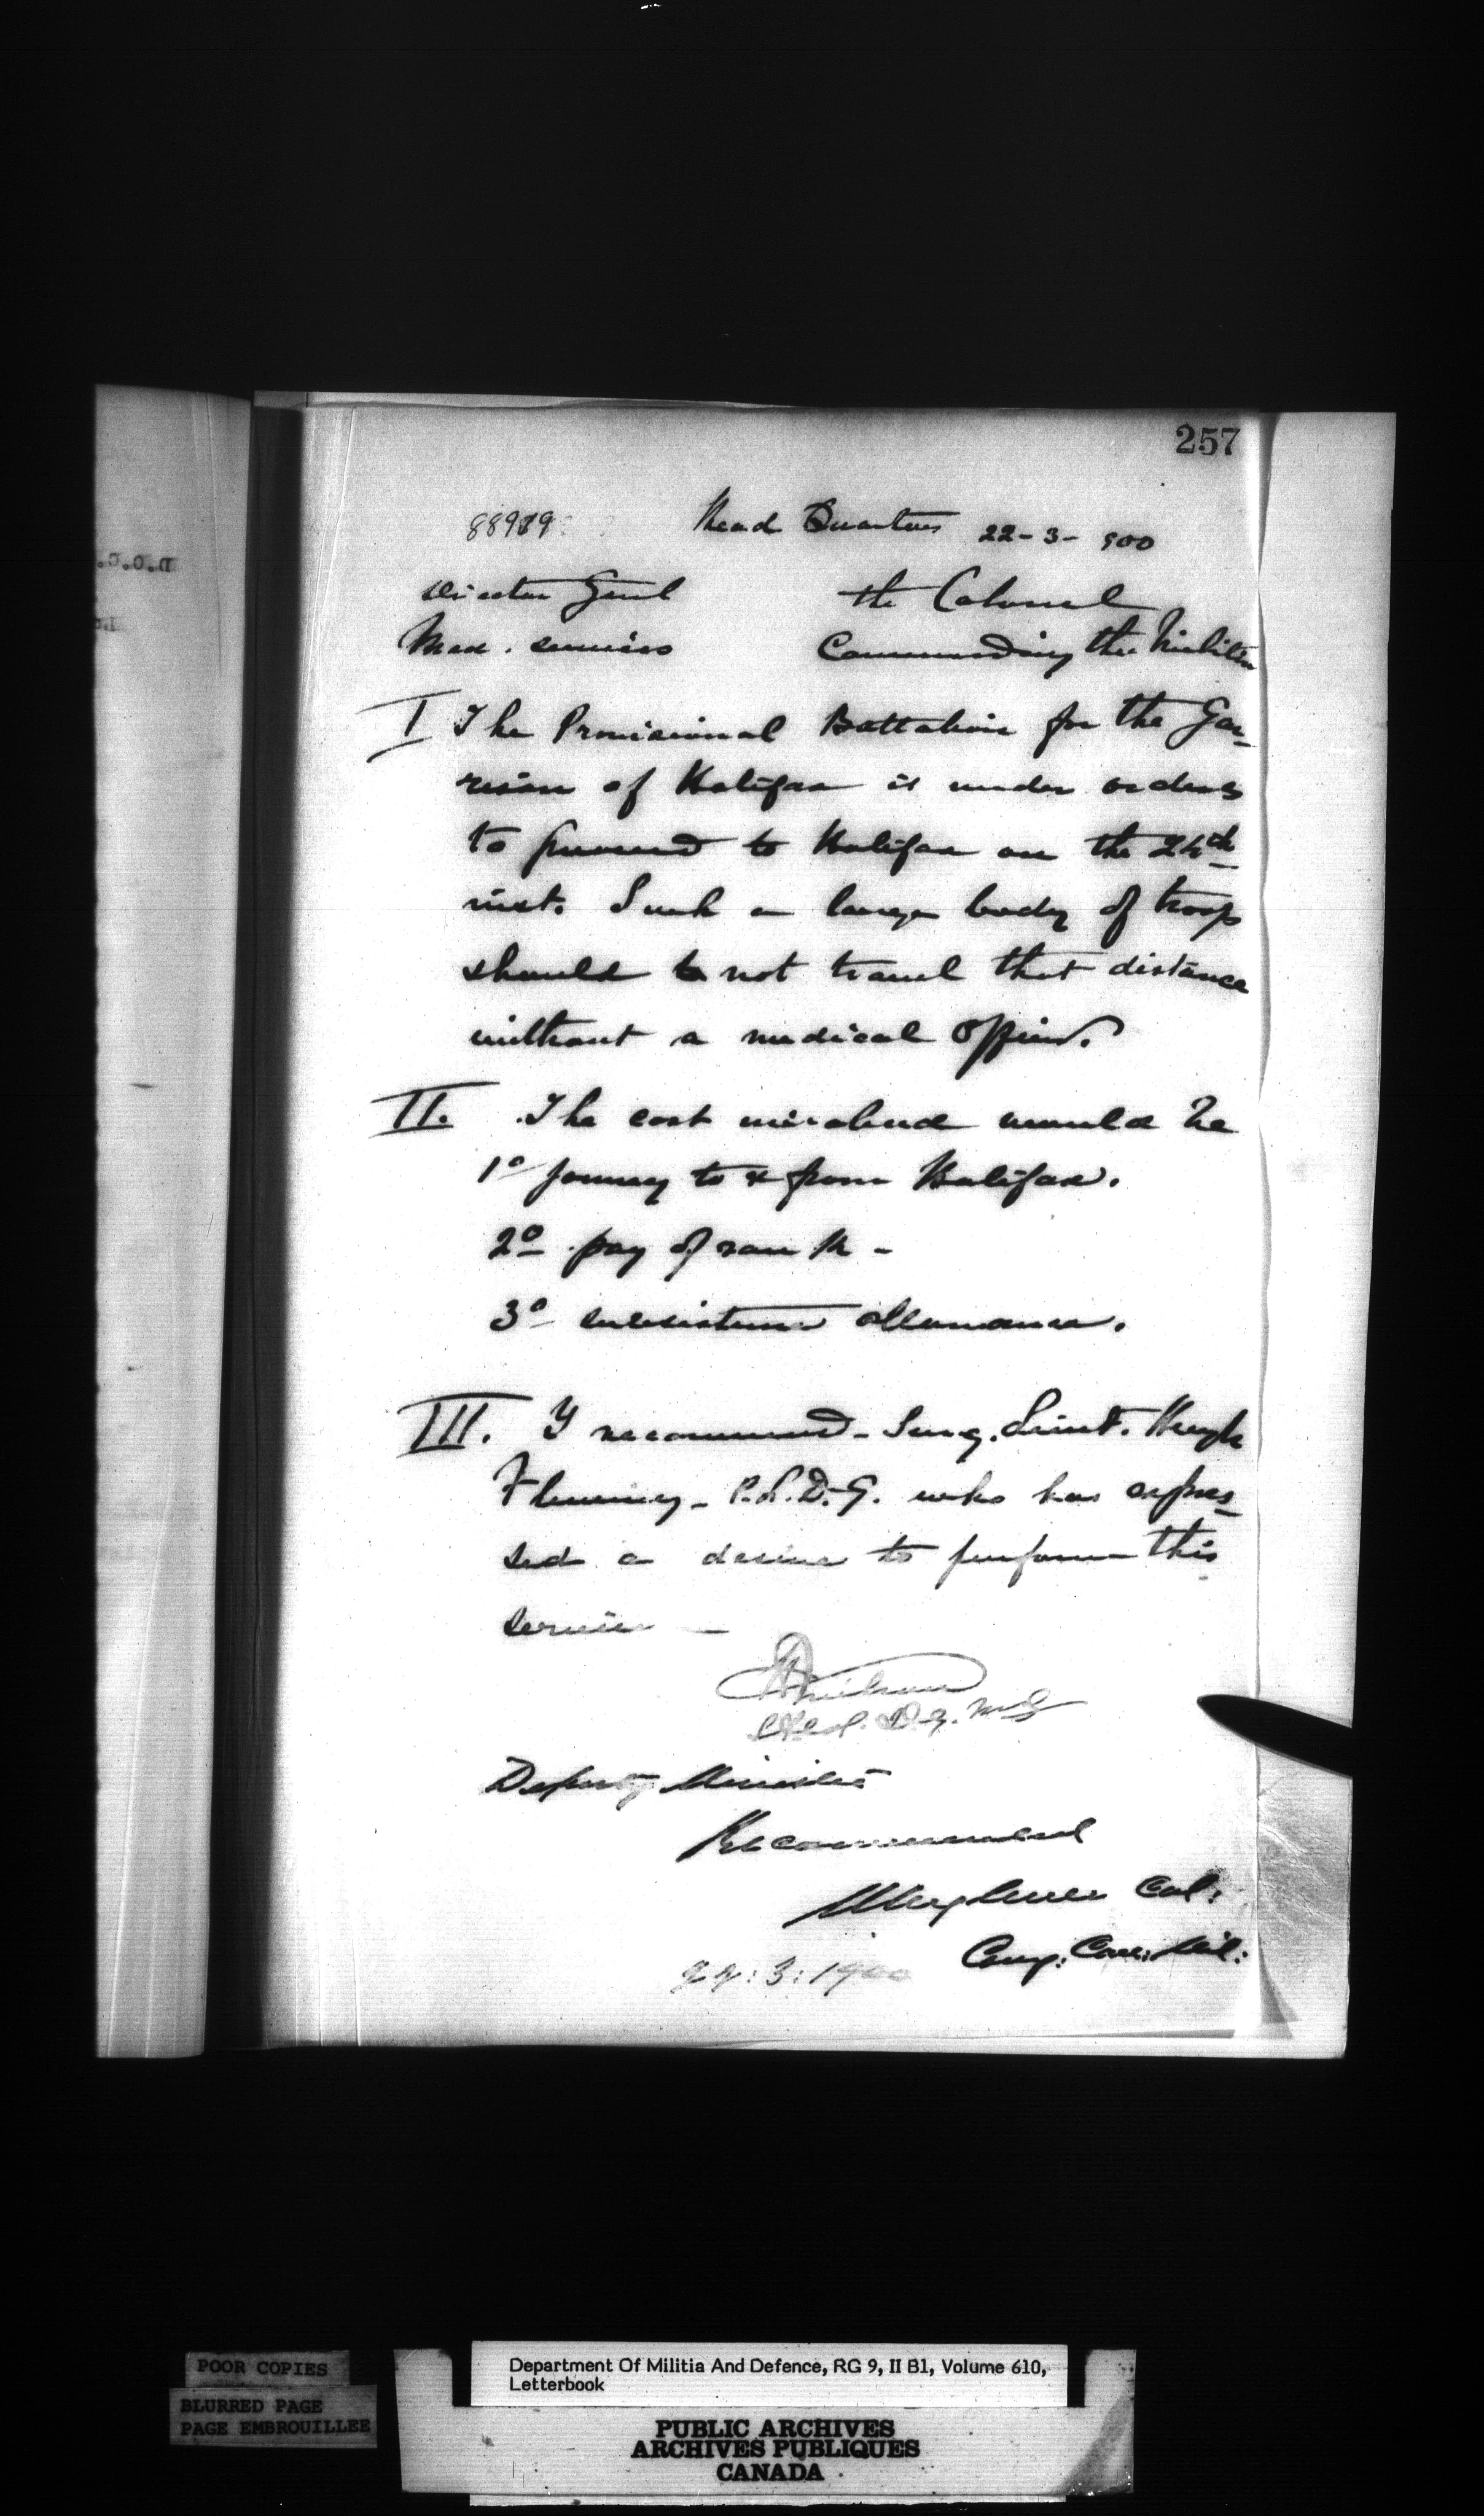 257
88919
Head Quarters 22-3-900
Director Genl the Colonel
Med. services Commanding the Militia
I The Provisional Battalion for the Gar-
rison of Halifax is under orders
to proceed to Halifax on the 24th
inst. Such a large body of troops
should not travel that distance
without a medical officer.
II. The cost involved would be
1o journey to & from Halifax.
2o pay of rank -
3o subsistence allowance.
III. I recommend - Surg. Lieut. Hugh
Fleming - P.L.D.G. who has expres-
sed a desire to perform this
service —
Lt Col. D.G.M.S
Deputy Minister
Recommend
Col:
Comg: Can: Mil:
22:3:1900
D.O.C.
POOR COPIES
BLURRED PAGE
PAGE EMBROUILLEE
Department Of Militia And Defence, RG 9, II B1, Volume 610,
Letterbook
PUBLIC ARCHIVES
ARCHIVES PUBLIQUES
CANADA